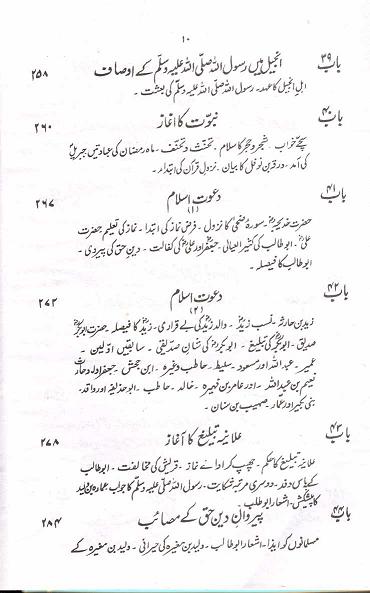 ۱۰
باب ۳۹ انجیل میں رسول اللہ صلی اللہ علیہ وسلم کے اوصاف ۲۵۸
اہلِ انجیل کا عہد۔ رسول اللہ صلی اللہ علیہ وسلم کی بعثت۔
باب ۴۰ نبوّت کا آغاز ۲۶۰
سچے خواب۔ شجر و حجر کا سلام۔ تحنث و تحنف۔ ماہ رمضان کی عبادتیں جبریلؑ
کی آمد۔ ورقہ بن نوفل کا بیان۔ نزول قرآن کی ابتدا۔
باب ۴۱ دعوت اسلام ۲۶۷
(۱)
حضرت خدیجہؓ۔ سورۂ ضحیٰ کا نزول۔ فرض نماز کی ابتدا۔ نماز کی تعلیم حضرت
علیؓ۔ ابوطالب کی کثیر العیالی۔ جعفرؓ اور علیؓ کی کفالت۔ دینِ حق کی پیروی۔
ابوطالب کا فیصلہ۔
باب ۴۲ دعوت اسلام ۲۷۲
(۲)
زید بن حارثہ۔ نسب زیدؓ۔ والد زیدؓ کی بے قراری۔ زیدؓ کا فیصلہ حضرت ابوبکرؓ
صدیق۔ ابوبکرؓ کی تبلیغ۔ ابوبکرؓ کی شانِ صدیقی۔ سابقین اوّلین۔
عمیر۔ عبداللہ اور مسعود۔ سلیط۔ حاطب وغیرہ۔ ابن جحش۔ جعفر اولاد حارث
نعیم بن عبداللہ۔ اور عامر بن فہیرہ۔ خالد۔ حاطب۔ ابوحذیفہ اور واقد۔
بنی بکیر اور عمّار۔ صہیب بن سنان۔
باب ۴۳ علانیہ تبلیغ کا آغاز ۲۷۸
علانیہ تبلیغ کا حکم۔ چھپ کر ادائے نماز۔ قریش کی مخالفت۔ ابوطالب
کے پاس وفد۔ دوسری مرتبہ شکایت۔ رسول اللہ صلی اللہ علیہ وسلم کا جواب عمارہ بن ولید
کا پیشکش۔ اشعار ابوطالب۔
باب ۴۴ پیروانِ دینِ حق کے مصائب ۲۸۴
مسلمانوں کو ایذا۔ اشعار ابوطالب۔ ولید بن مغیرہ کی حیرانی۔ ولید بن مغیرہ کے